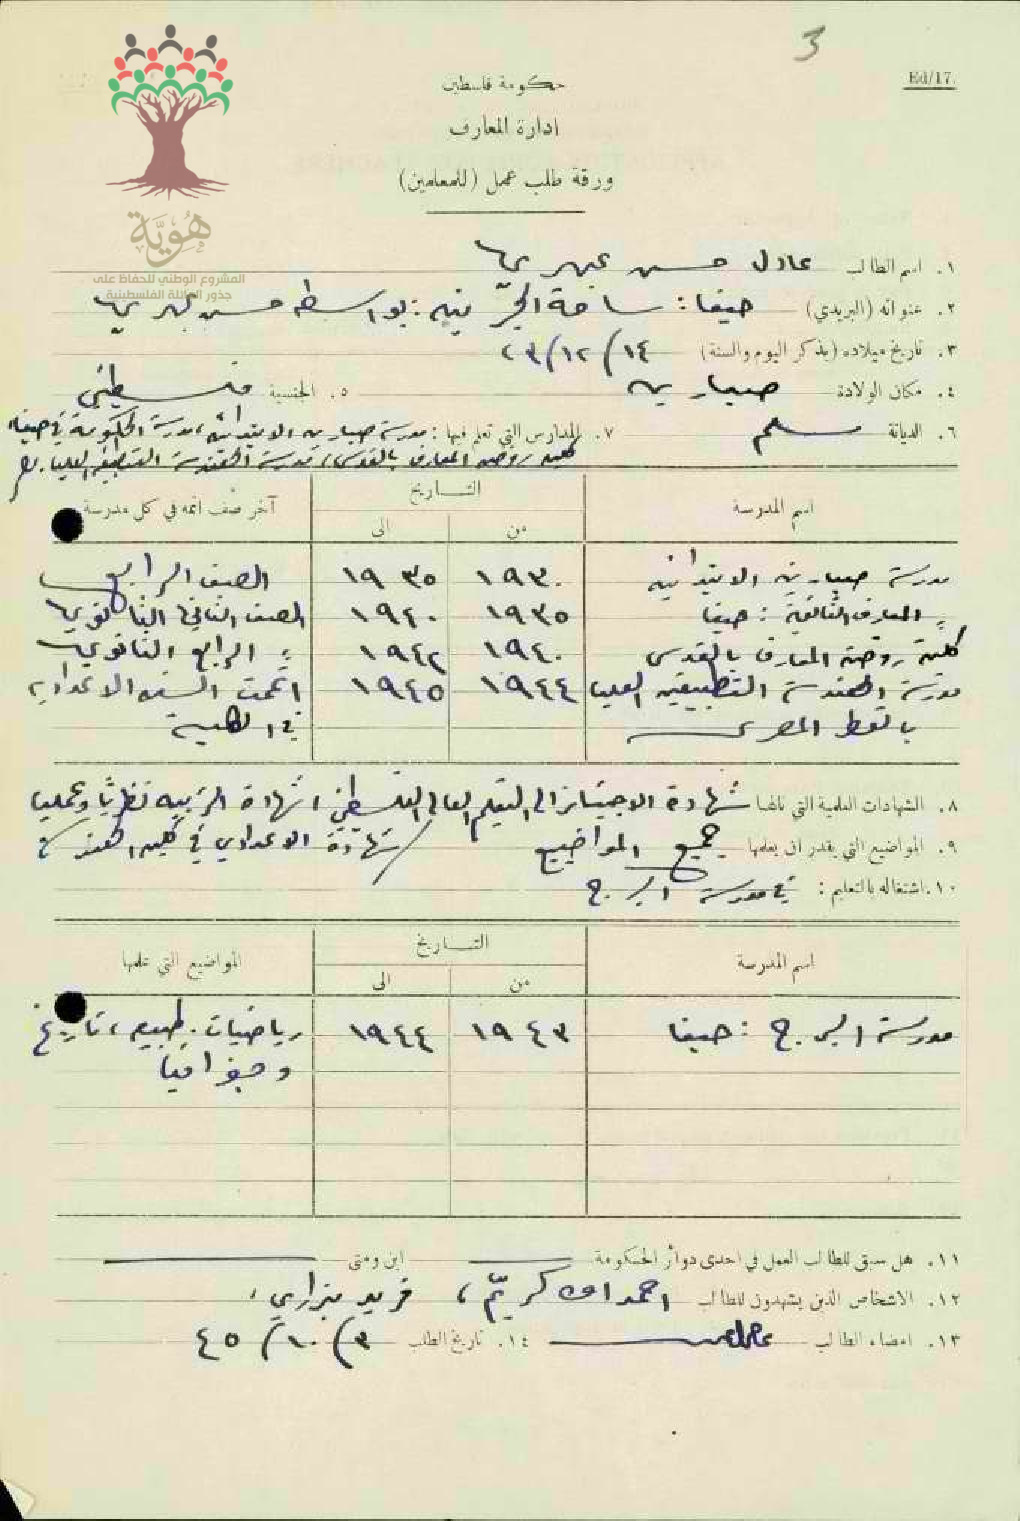 3
Ed/17.
حكومة فلسطين
ادارة المعارف
ورقة طلب عمل (للمعلمين)
هُوِيَّة
المشروع الوطني للحفاظ على
جذور العائلة الفلسطينية
١. اسم الطالب عادل حسن
٢. عنوانه (البريدي) حيفا : ساحة : بواسطة حسن
٣. تاريخ ميلاده (بذكر اليوم والسنة) ١٤/١٢/٢٣
٤. مكان الولادة صبارين ٥. الجنسية فلسطيني
٦. الديانة مسلم ٧. المدارس التي تعلم فيها : مدرسة صبارين الابتدائية، مدرسة الحكومة في حيفا،
كلية روضة المعارف بالقدس، مدرسة الهندسة التطبيقية العليا.
اسم المدرسة التاريخ آخر صف اتمه في كل مدرسة
من الى
مدرسة صبارين الابتدائية ١٩٣٠ ١٩٣٥ الصف الرابع
المعارف الثانوية : حيفا ١٩٣٥ ١٩٤٠ الصف الثاني الثانوي
كلية روضة المعارف بالقدس ١٩٤٠ ١٩٤٢ الرابع الثانوي
مدرسة الهندسة التطبيقية العليا ١٩٤٤ ١٩٤٥ اتممت السنة الاعدادية
بالقطر المصري في الكلية
٨. الشهادات العلمية التي نالها شهادة الاجتياز الى التعليم العالي الفلسطيني، شهادة التربية نظريًا وعمليا
شهادة الاعدادي في كلية الهندسة
٩. المواضيع التي يقدر ان يعلمها جميع المواضيع
١٠. اشتغاله بالتعليم : في مدرسة البرج
اسم المدرسة التاريخ المواضيع التي علمها
من الى
مدرسة البرج : حيفا ١٩٤٣ ١٩٤٤ رياضيات. طبيعة، تاريخ
وجغرافيا
١١. هل سبق للطالب العمل في احدى دوائر الحكومة اين ومتى
١٢. الاشخاص الذين يشهدون للطالب احمد ، فريد
١٣. امضاء الطالب ١٤. تاريخ الطلب ٣/١٠/٤٥